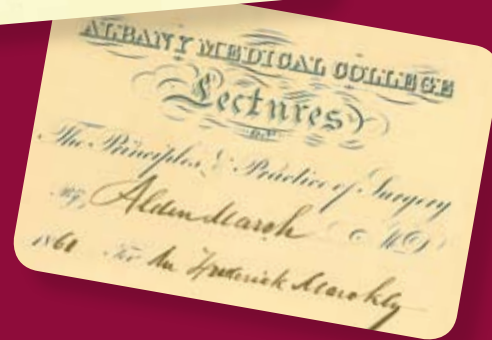 ALBANY MEDICAL COLLEGE
Lectures
ON
The Principles & Practice of Surgery
By Alden March M D
186 For Mr Frederick